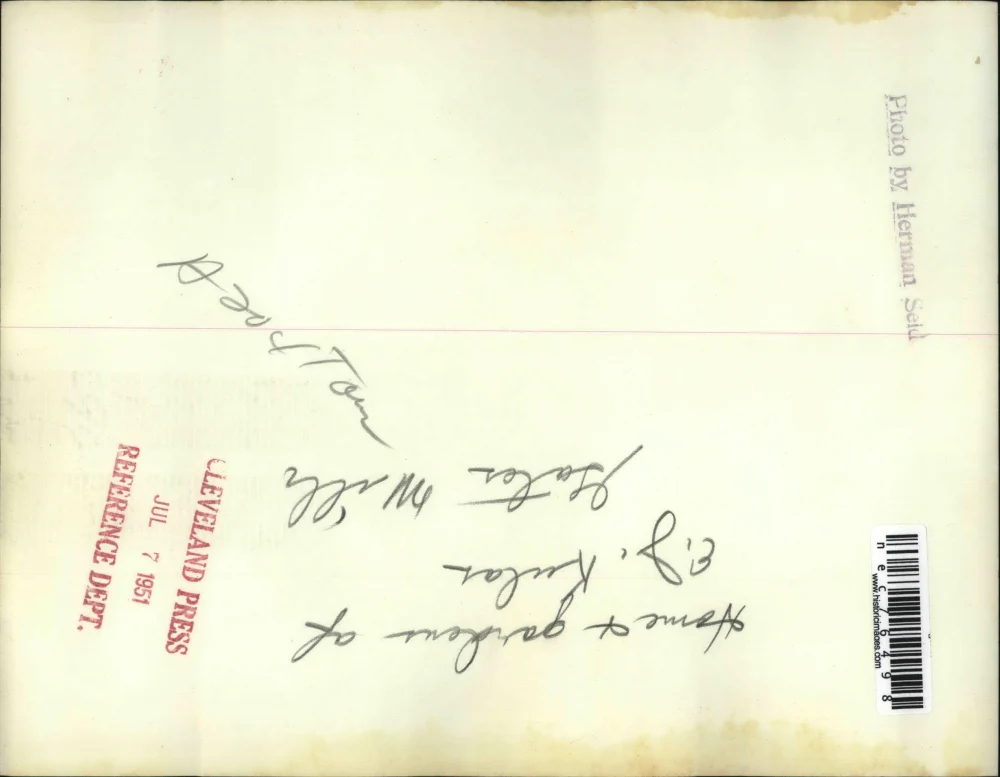 Photo by Herman Seid
Home & gardens of
E.J. Kulas
Gates Mills
CLEVELAND PRESS
JUL 7 1951
REFERENCE DEPT.
nec76498
www.historicimages.com